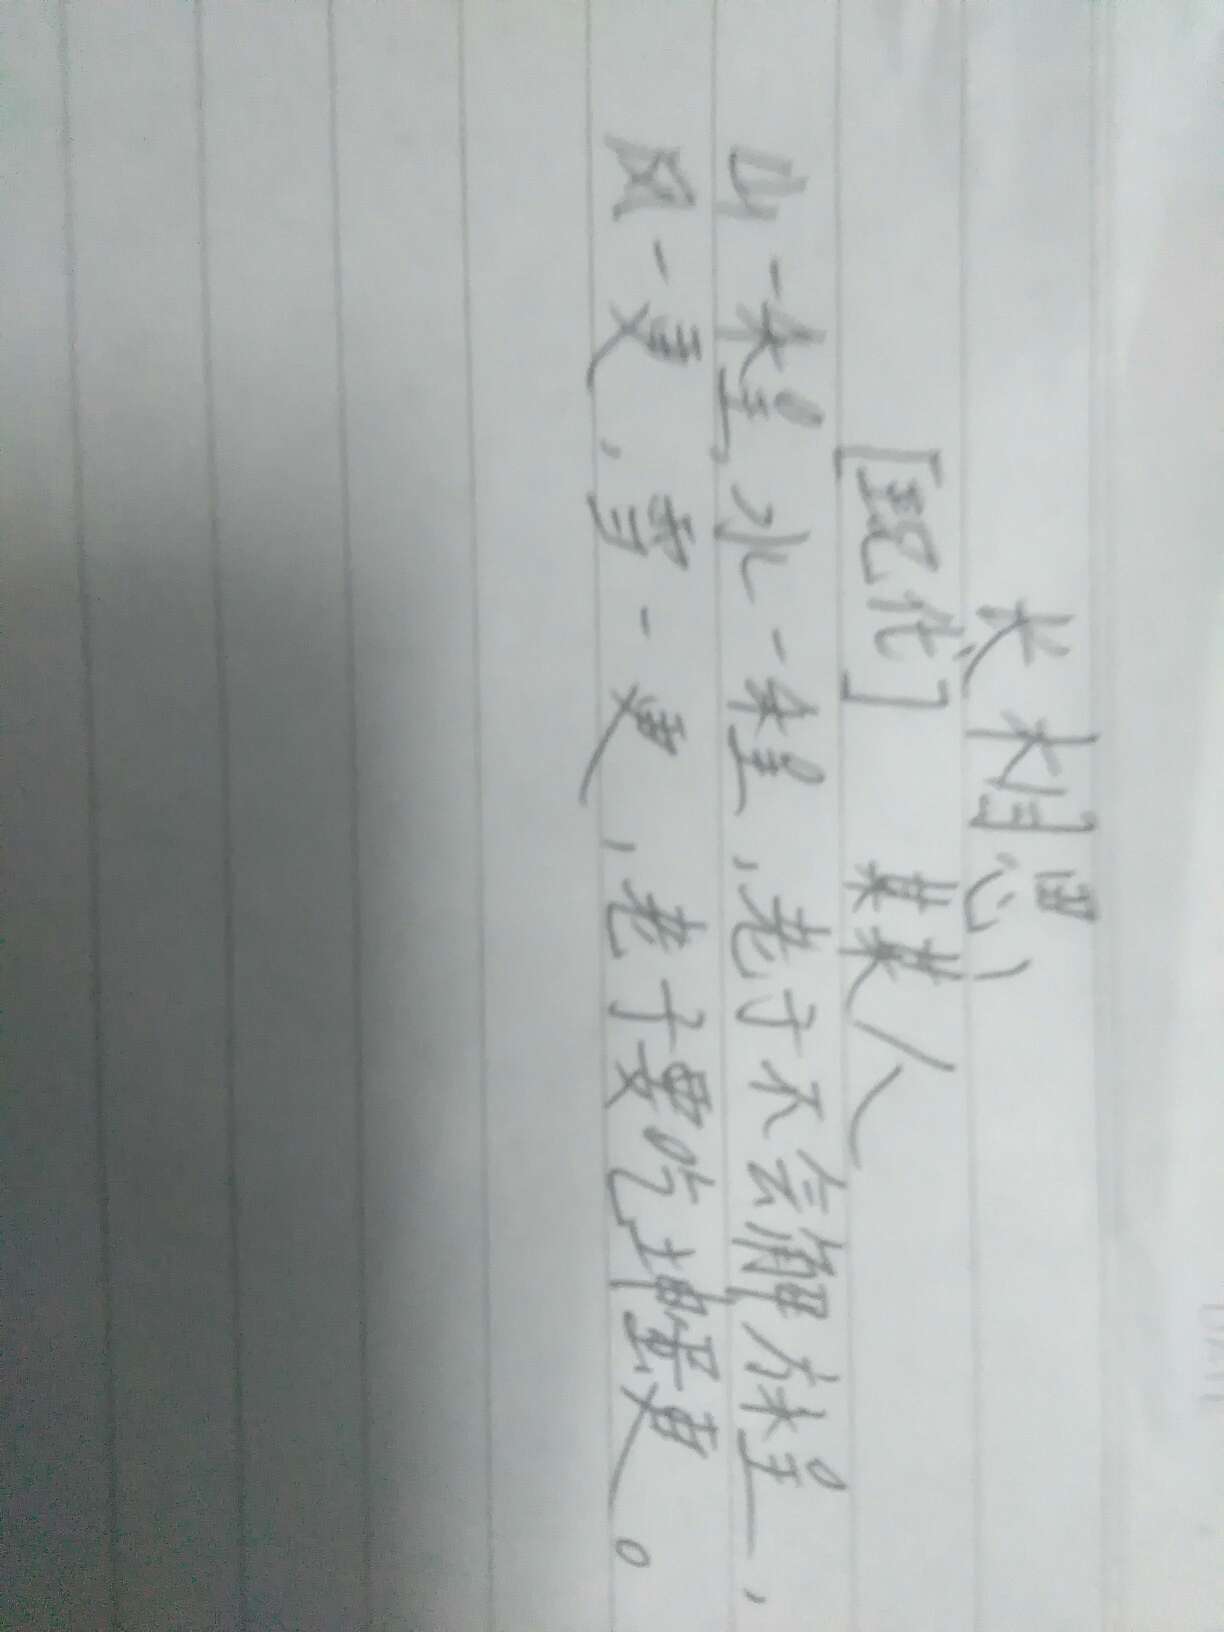 长相思
[现代] 某某人
山一程,水一程,老子不会解方程,
风一更,雪一更,老子要吃坤蛋更。